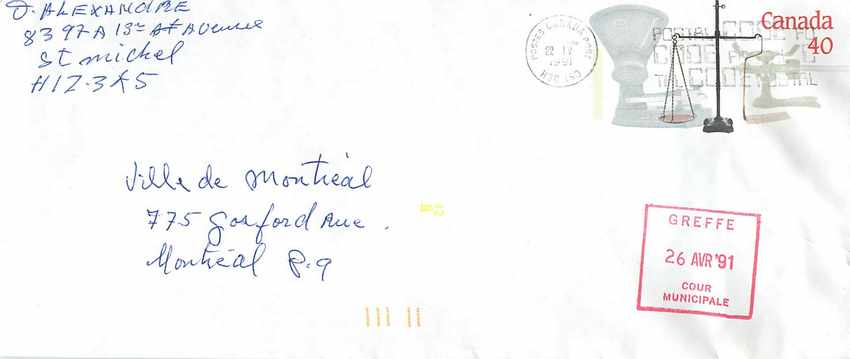 D. ALEXANDRE
8397A 13e Avenue
St michel
H1Z-3K5
POSTES CANADA POST
1991
POSTAL CODE
CODE POSTAL
Canada
40
Ville de Montréal
775 Gosford Ave.
Montréal P.q
GREFFE
26 AVR '91
COUR
MUNICIPALE